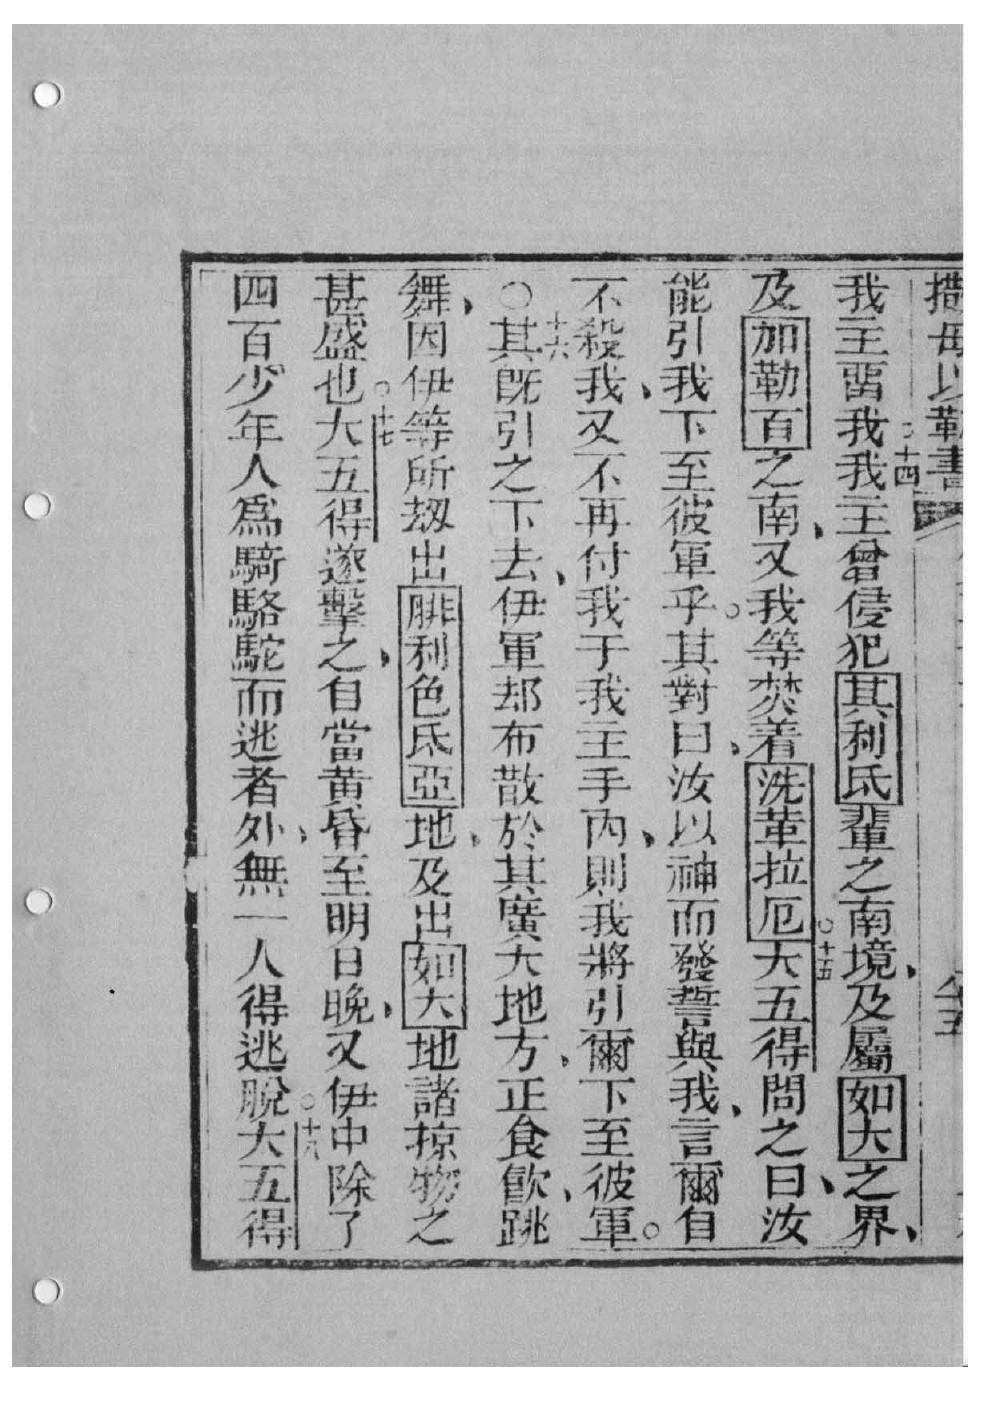 撒母以勒書
我主畱我。十四我主曾侵犯其利氐輩之南境、及屬如大之界、
及加勒百之南、又我等焚着洗革拉厄。十五大五得問之曰、汝
能引我下至彼軍乎。其對曰、汝以神而發誓與我、言爾自
不殺我、又不再付我于我主手內、則我將引爾下至彼軍。
○十六其旣引之下去、伊軍却布散於其廣大地方、正食飮、跳
舞、因伊等所刼出腓利色氐亞地、及出如大地諸掠物之
甚盛也。十七大五得遂擊之、自當黃昏至明日晚、又伊中除了
四百少年人爲騎駱駝而逃者外、無一人得逃脫。十八大五得